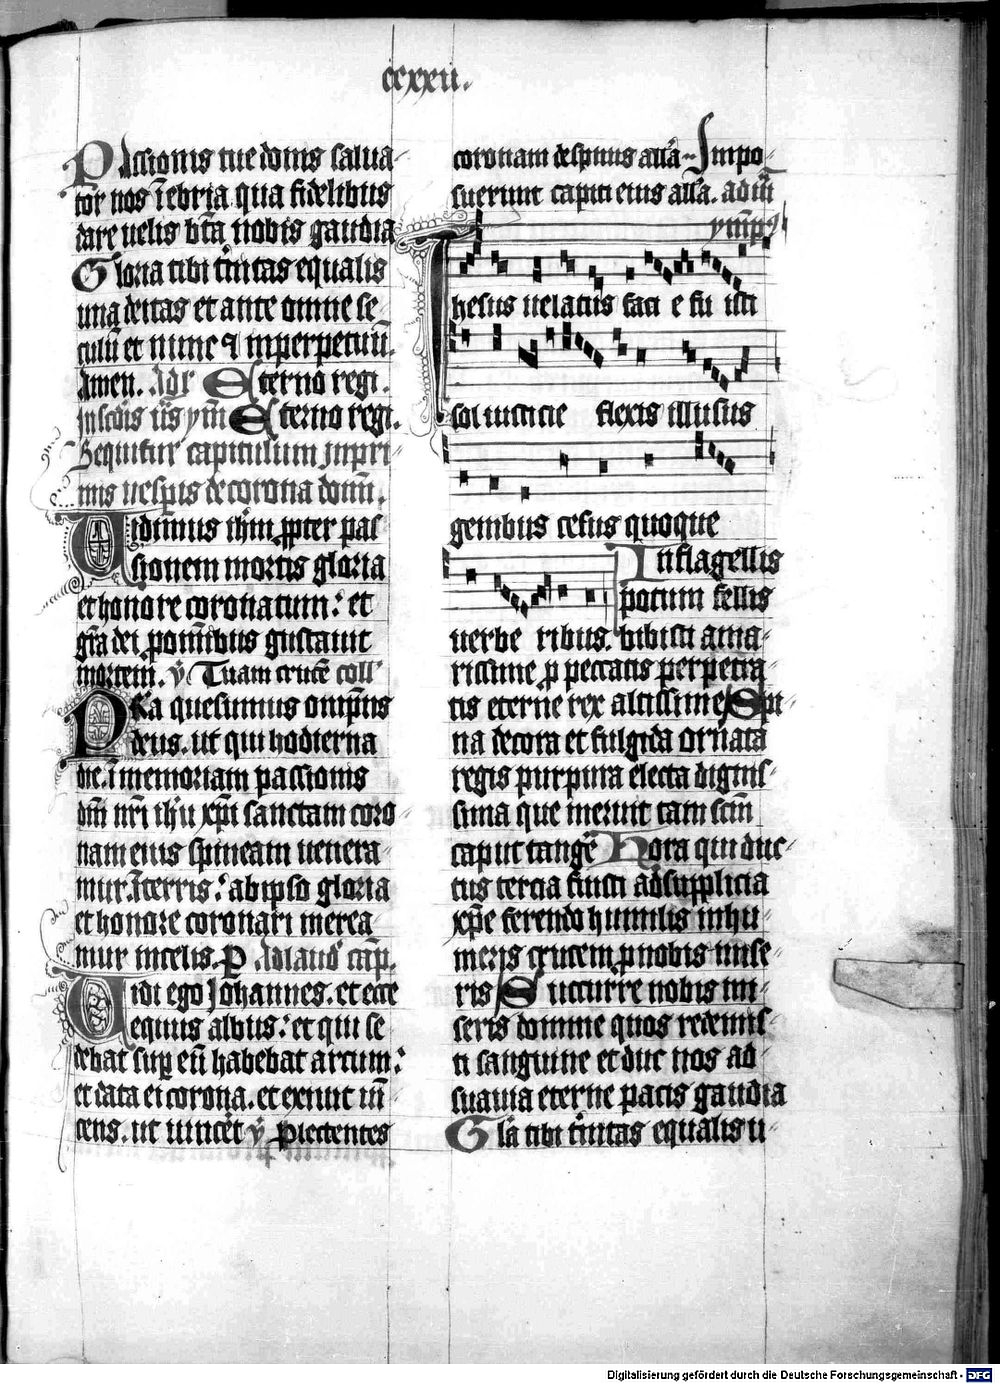 ccxxii.
Passionis tue donis salua-
tor nos īebria qua fidelibus
dare uelis bt̄a nobis gaudia
Gloria tibi t̄nitas equalis
una deitas et ante omne se-
culū et nunc ⁊ inperpetuū.
Amen. Eterno regi.
ym̄ Eterno regi.
Sequitur capitulum inpri-
mis uesꝑis decorona domī.
Uidimus ihm̄ ꝓpter pas-
sionem mortis gloria
et honore coronatum: et
gr̄a dei ꝓ om̄ibus gustauit
mortem. ꝟ Tuam crucē coll'
Presta quesumus omp̄us
deus. ut qui hodierna
die. ī memoriam passionis
dn̄i nr̄i ih'u xp̄i sanctam coro-
nam eius spineam uenera-
mur. ī terris: ab ipso gloria
et honore coronari merea-
mur incelis. P Adlaud' cap̄.
Uidi ego Johannes. et ecce
equus albus: et qui se-
debat suꝑ eū habebat arcum:
et data ei corona. et exiuit uī-
cens. ut uincēt ꝟ Plectentes
coronam despinis all'a. Impo-
suerunt capiti eius all'a.
ymp̄
Ihesus uelatus faci e fu isti
sol iusticie flexis illusus
genibus cesus quoque
uerbe ribus.
In flagellis
potum fellis
bibisti ama-
rissime ꝓ peccatis perpetra-
tis eterne rex altissime Spi-
na decora et fulgida ornata
regis purpura electa dignis-
sima que meruit tam scm̄
caput tangē Hora qui duc-
tus tercia fuisti adsupplicia
xp̄e ferendo humilis inhu-
meris crucem ꝓ nobis mise-
ris Succurre nobis mi-
seris domine quos redemis-
ti sanguine et duc nos ad
suauia eterne pacis gaudia
Gl'a tibi t̄nitas equalis u-
Digitalisierung gefördert durch die Deutsche Forschungsgemeinschaft - DFG